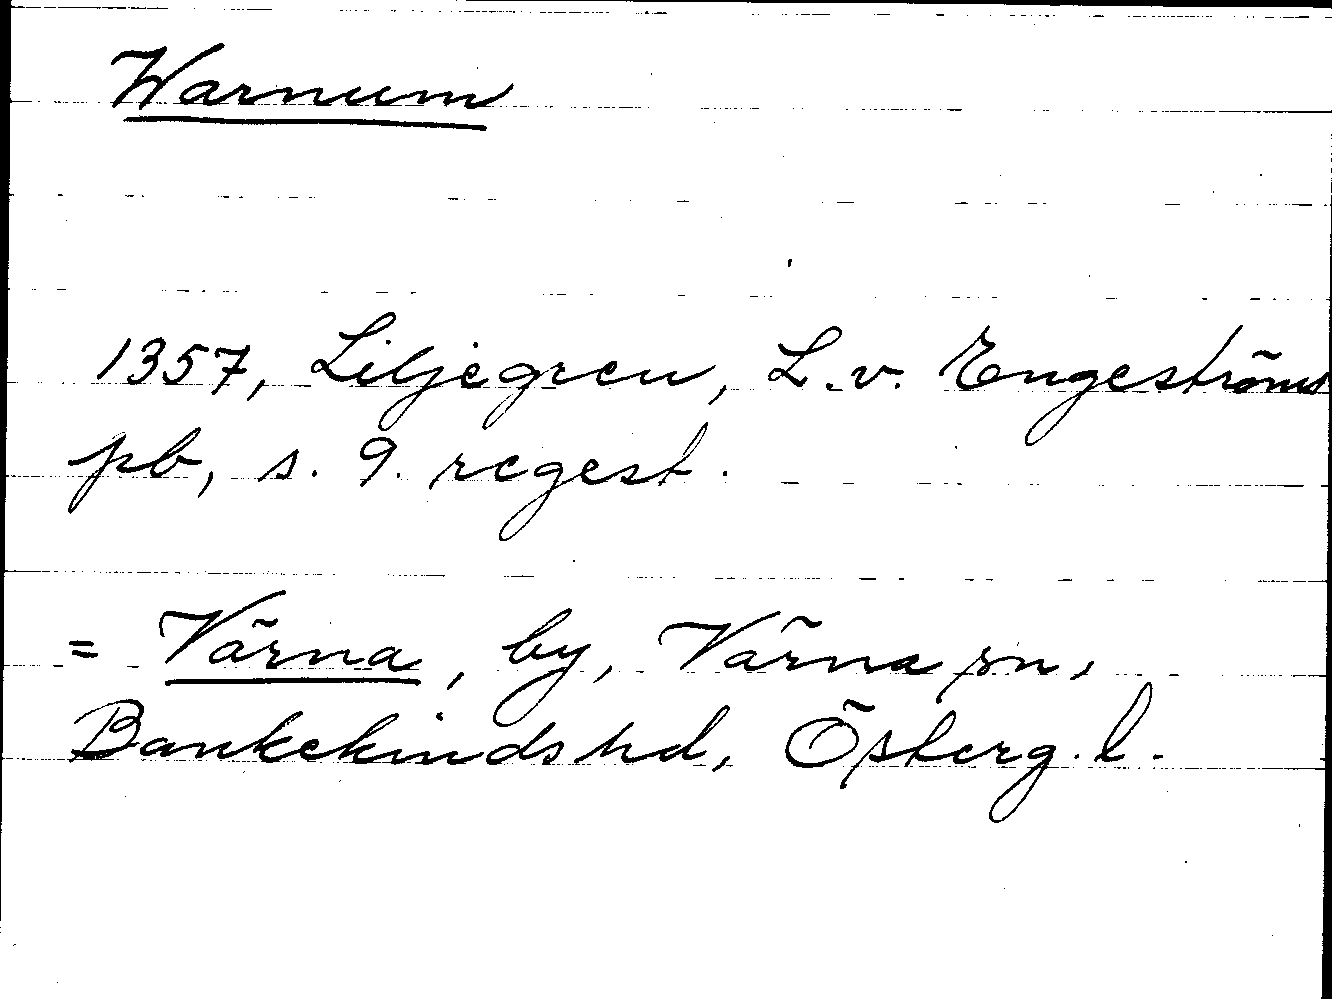 Warnum
1357, Liljegren, L. v. Engeströms
pb, s. 9. regest.
= Värna, by, Värna sn,
Bankekinds hd, Österg. l.